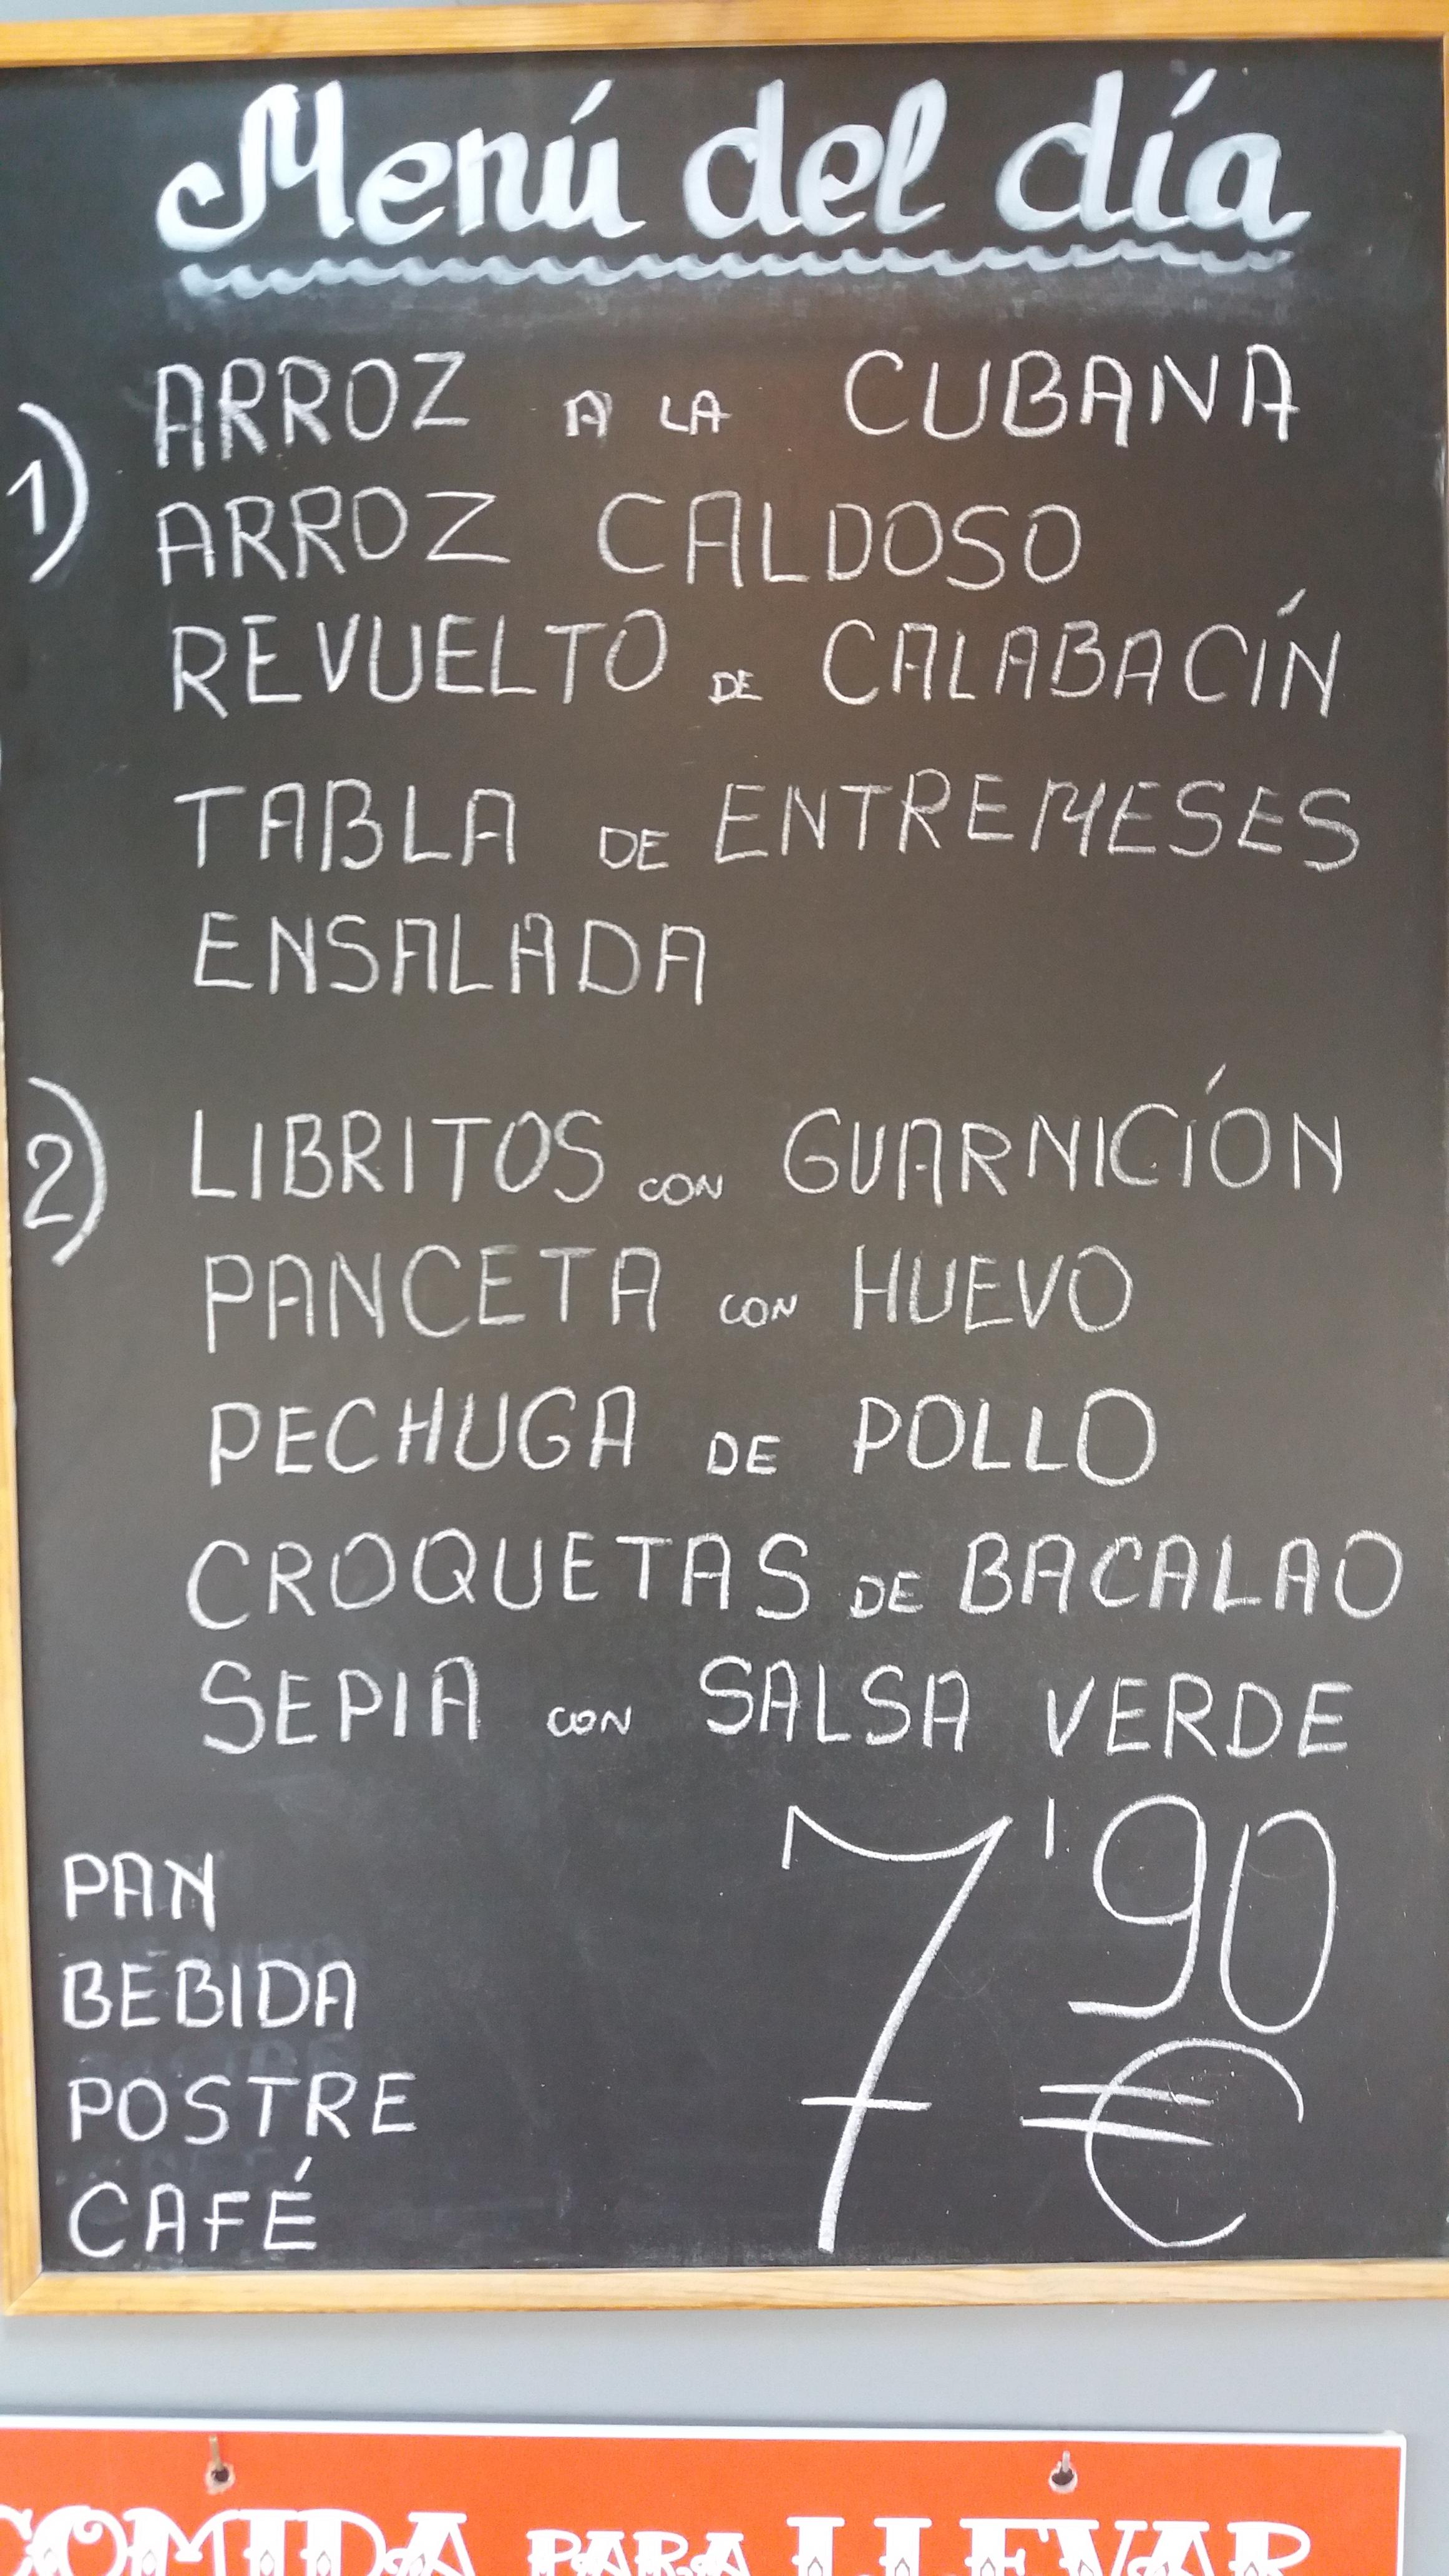 Menú del día
1) ARROZ A LA CUBANA
ARROZ CALDOSO
REVUELTO DE CALABACÍN
TABLA DE ENTREMESES
ENSALADA
2) LIBRITOS CON GUARNICIÓN
PANCETA CON HUEVO
PECHUGA DE POLLO
CROQUETAS DE BACALAO
SEPIA CON SALSA VERDE
PAN
BEBIDA
POSTRE
CAFÉ
7'90
€
COMIDA PARA LLEVAR